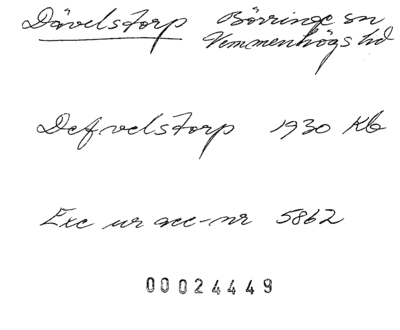 Dävelstorp Börringe sn
Vemmenhögs hd
Defvelstorp 1930 Kb
Exc ur acc-nr 5862
00024449